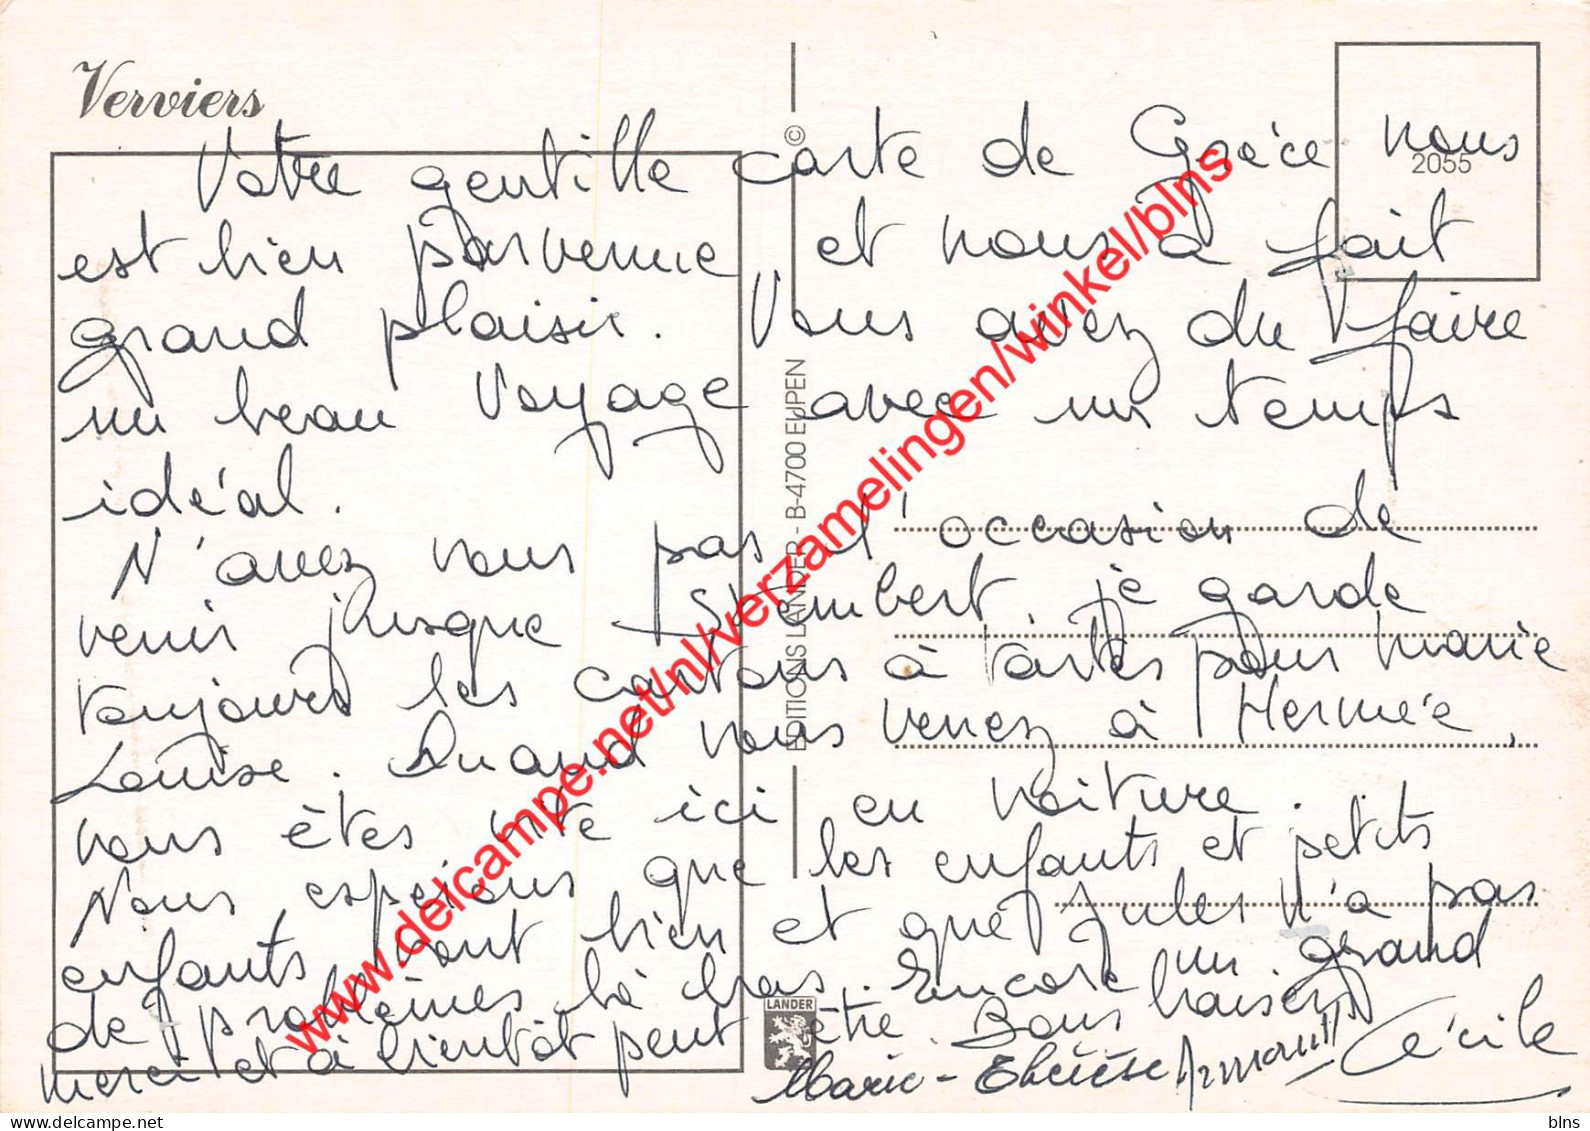 Verviers
Votre gentille carte de Grèce nous
2055
est bien parvenue, et nous a fait
grand plaisir. Vous avez du faire
un beau voyage avec un temps
idéal.
N'avez vous pas l'occasion de
venir jusque Stembert. je garde
toujours les cartons à tartes pour Marie
Louise. Quand vous venez à Hermée,
vous êtes vite ici en voiture.
Nous espérons que les enfants et petits
enfants vont bien et que Jules n'a pas
de problèmes là bas. Encore un grand
merci et à bientôt peut être. Bons baisers
Marie-Thérèse Armand Cécile
© EDITIONS LANDER - B-4700 EUPEN
LANDER
www.delcampe.net/nl/verzamelingen/winkel/blns
blns